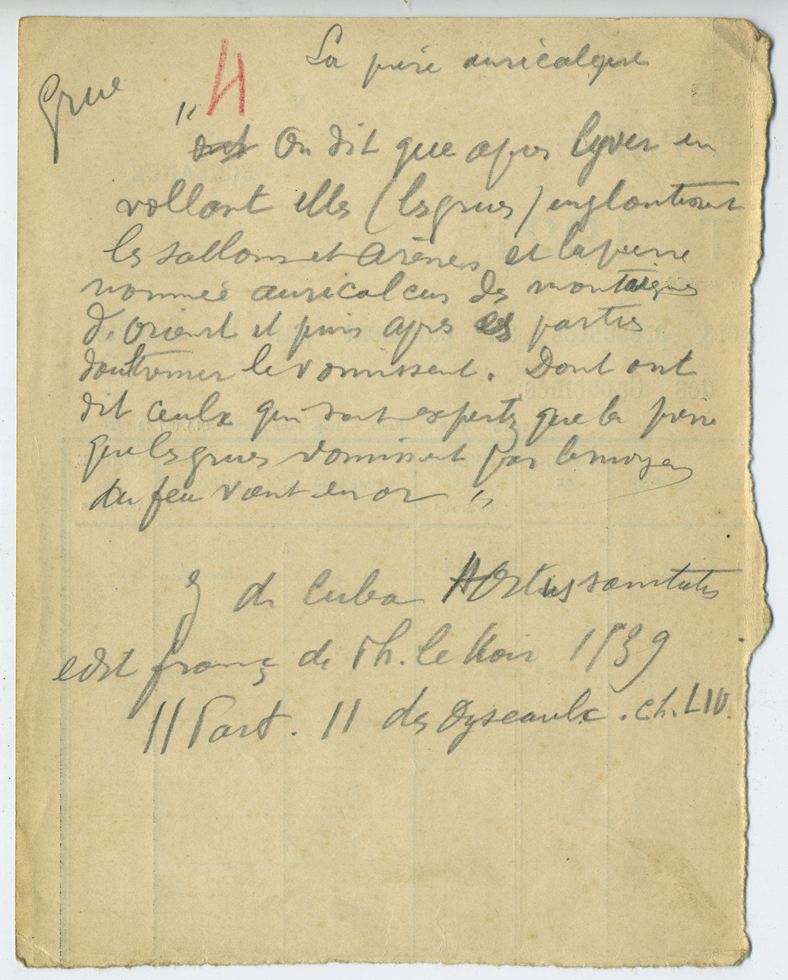 Grue
4
La pierre auricalque
" dit On dit que apres lyver en
vollant elles (les grues) englantissent
les sallons et arènes et la pierre
nommée auricalcus des montaignes
d'orient et puis apres es parties
doultremer le vomissent. Dont ont
dit ceulx qui sont expertz que la pierre
que les grues vomissent par le moyen
du feu vient en or "
J de Cuba Hortus sanitatis
edit franç de Ph. le Noir 1539
II Part. II des Oyseaulx. ch. LIV.